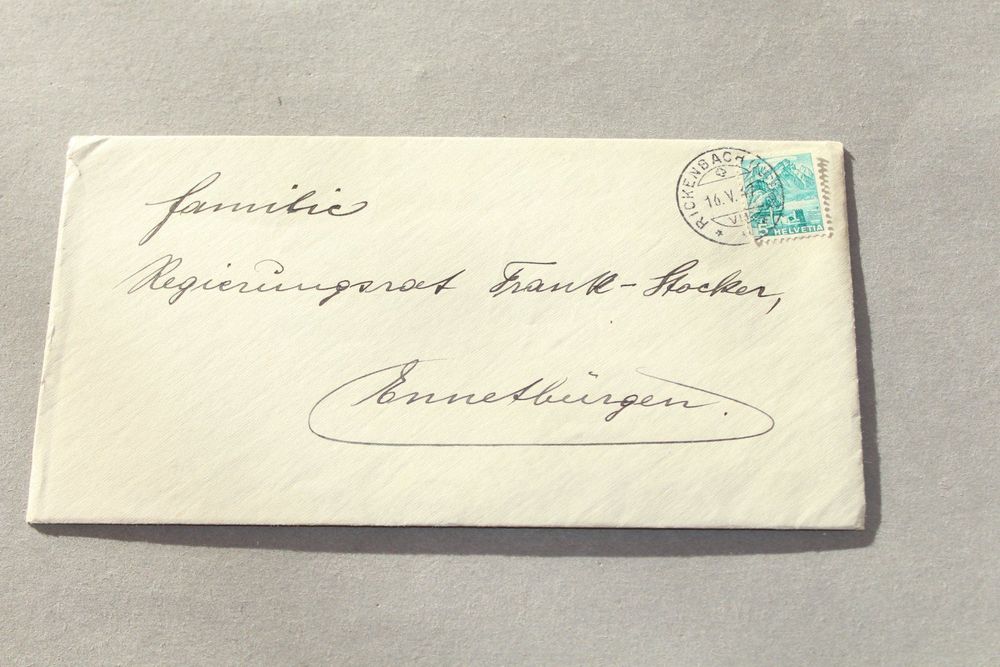 RICKENBACH
16.V.
VII
5
HELVETIA
Familie
Regierungsrat Frank-Stocker,
Ennetbürgen.